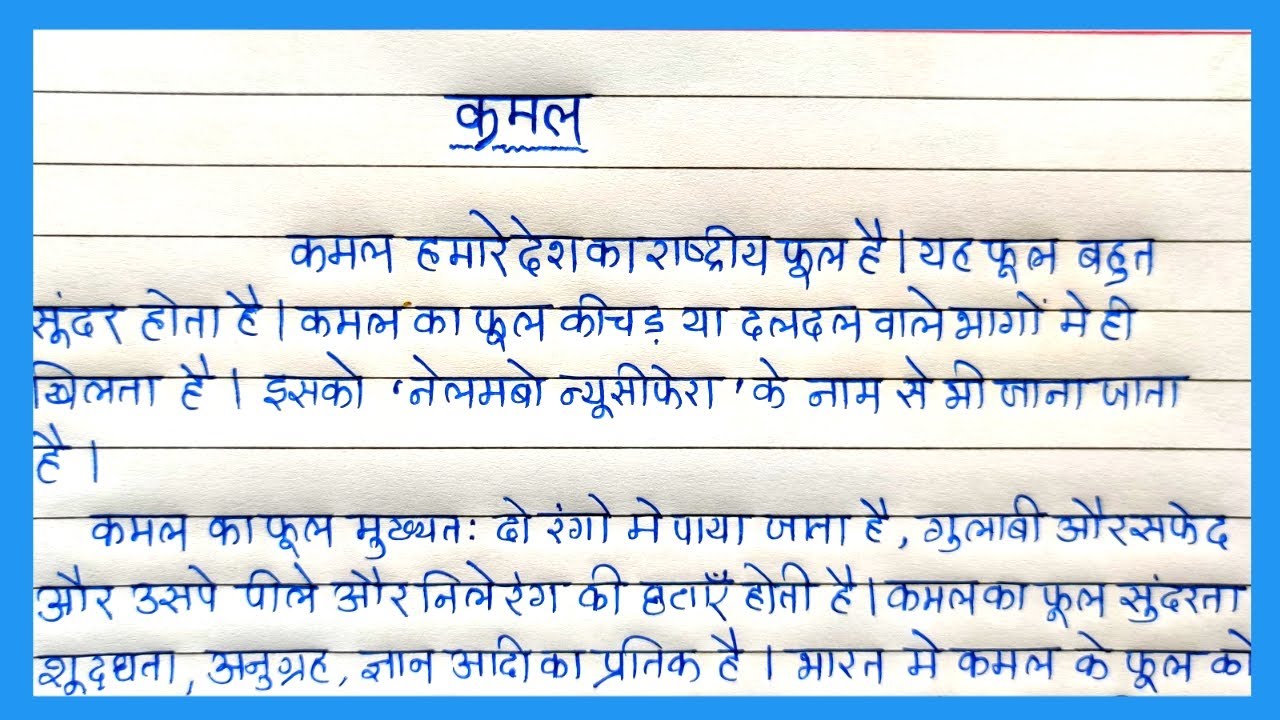 कमल
कमल हमारे देश का राष्ट्रीय फूल है । यह फूल बहुत
सुंदर होता है । कमल का फूल कीचड़ या दलदल वाले भागों मे ही
खिलता है । इसको 'नेलमबो न्यूसीफेरा' के नाम से भी जाना जाता
है ।
कमल का फूल मुख्यत: दो रंगो मे पाया जाता है, गुलाबी और सफेद
और उसपे पीले और निले रंग की छटाएँ होती है । कमल का फूल सुंदरता
शूद्धता, अनुग्रह, ज्ञान आदी का प्रतिक है । भारत मे कमल के फूल को